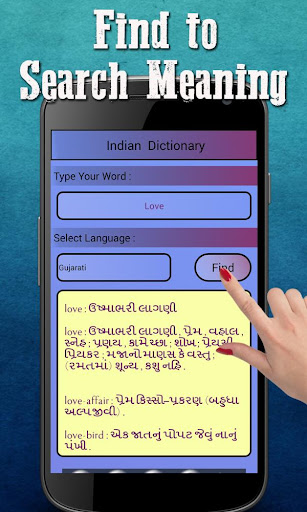 Find to
Search Meaning
Indian Dictionary
Type Your Word :
Love
Select Language :
Gujarati
Find
love : ઉષ્માભરી લાગણી
love : ઉષ્માભરી લાગણી , પ્રેમ , વહાલ ,
સ્નેહ ; પ્રણય , કામેચ્છા ; શોખ ; પ્રેયસી ,
પ્રિયકર ; મજાનો માણસ કે વસ્તુ ;
(રમતમાં) શૂન્ય , કશુ નહિ .
love-affair : પ્રેમ કિસ્સો-પ્રકરણ (બહુધા
અલ્પજીવી) .
love-bird : એક જાતનું પોપટ જેવું નાનું
પંખી .